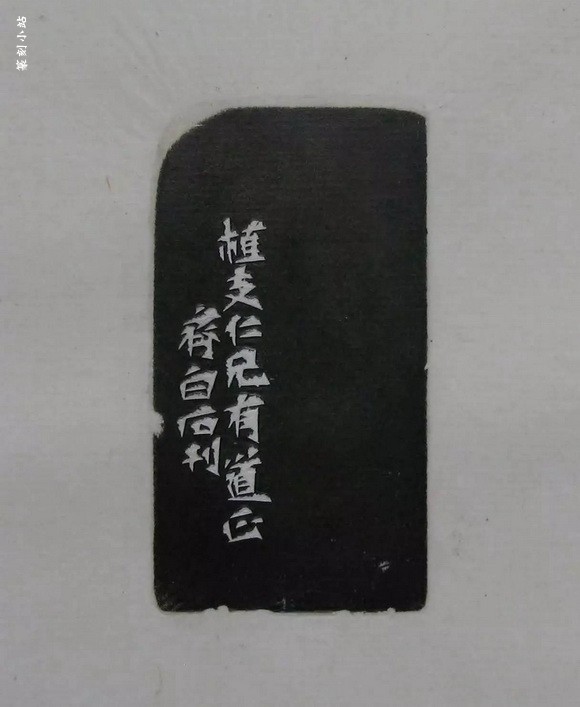 植支仁兄有道正
齊白石刊
篆刻小站